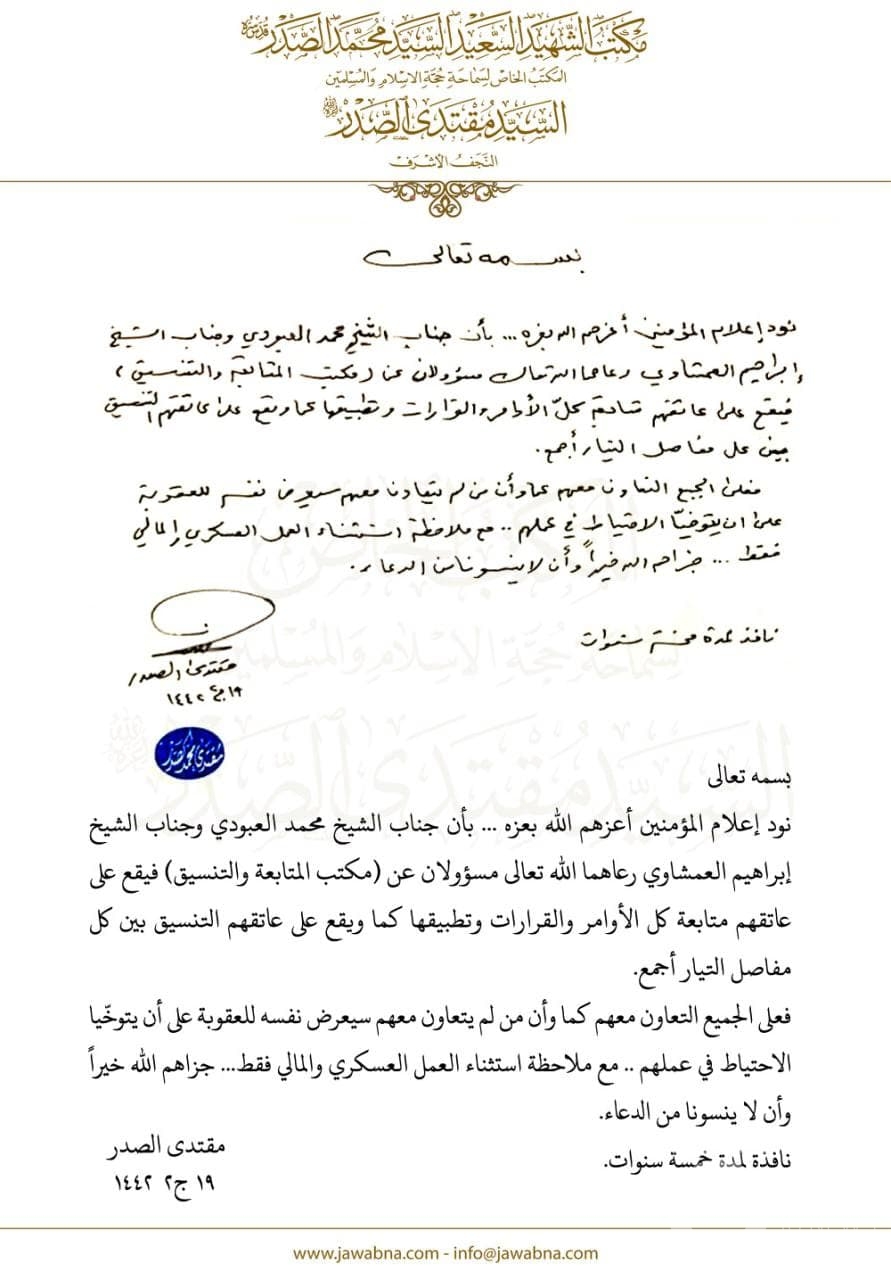 مكتب الشهيد السعيد السيد محمد الصدر قدس سره
المكتب الخاص لسماحة حجة الاسلام والمسلمين
السيد مقتدى الصدر
النجف الاشرف
بسمه تعالى
نود إعلام المؤمنين أعزهم الله بعزه ... بأن جناب الشيخ محمد العبودي وجناب الشيخ
إبراهيم العمشاوي رعاهما الله تعالى مسؤولان عن (مكتب المتابعة والتنسيق)
فيقع على عاتقهم متابعة كل الأوامر والقرارات وتطبيقها كما ويقع على عاتقهم التنسيق
بين كل مفاصل التيار أجمع.
فعلى الجميع التعاون معهم كما وأن من لم يتعاون معهم سيعرض نفسه للعقوبة
على ان يتوخيا الاحتياط في عملهم .. مع ملاحظة استثناء العمل العسكري والمالي
فقط ... جزاهم الله خيراً وأن لا ينسونا من الدعاء.
نافذ لمدة خمسة سنوات
مقتدى الصدر
١٩ ج٢ ١٤٤٢
مقتدى محمد الصدر
بسمه تعالى
نود إعلام المؤمنين أعزهم الله بعزه ... بأن جناب الشيخ محمد العبودي وجناب الشيخ
إبراهيم العمشاوي رعاهما الله تعالى مسؤولان عن (مكتب المتابعة والتنسيق) فيقع على
عاتقهم متابعة كل الأوامر والقرارات وتطبيقها كما ويقع على عاتقهم التنسيق بين كل
مفاصل التيار أجمع.
فعلى الجميع التعاون معهم كما وأن من لم يتعاون معهم سيعرض نفسه للعقوبة على أن يتوخّيا
الاحتياط في عملهم .. مع ملاحظة استثناء العمل العسكري والمالي فقط... جزاهم الله خيراً
وأن لا ينسونا من الدعاء.
نافذة لمدة خمسة سنوات.
مقتدى الصدر
١٩ ج٢ ١٤٤٢
www.jawabna.com - info@jawabna.com